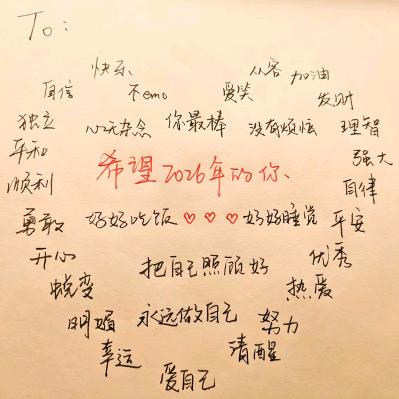 To:
快乐 从容 加油
自信 不emo 爱笑 发财
独立 心无杂念 你最棒 没有烦恼 理智
平和 希望2026年的你、 强大
顺利 自律
勇敢 好好吃饭♡♡♡好好睡觉 平安
开心 把自己照顾好 优秀
蜕变 热爱
明媚 永远做自己 努力
幸运 清醒
爱自己